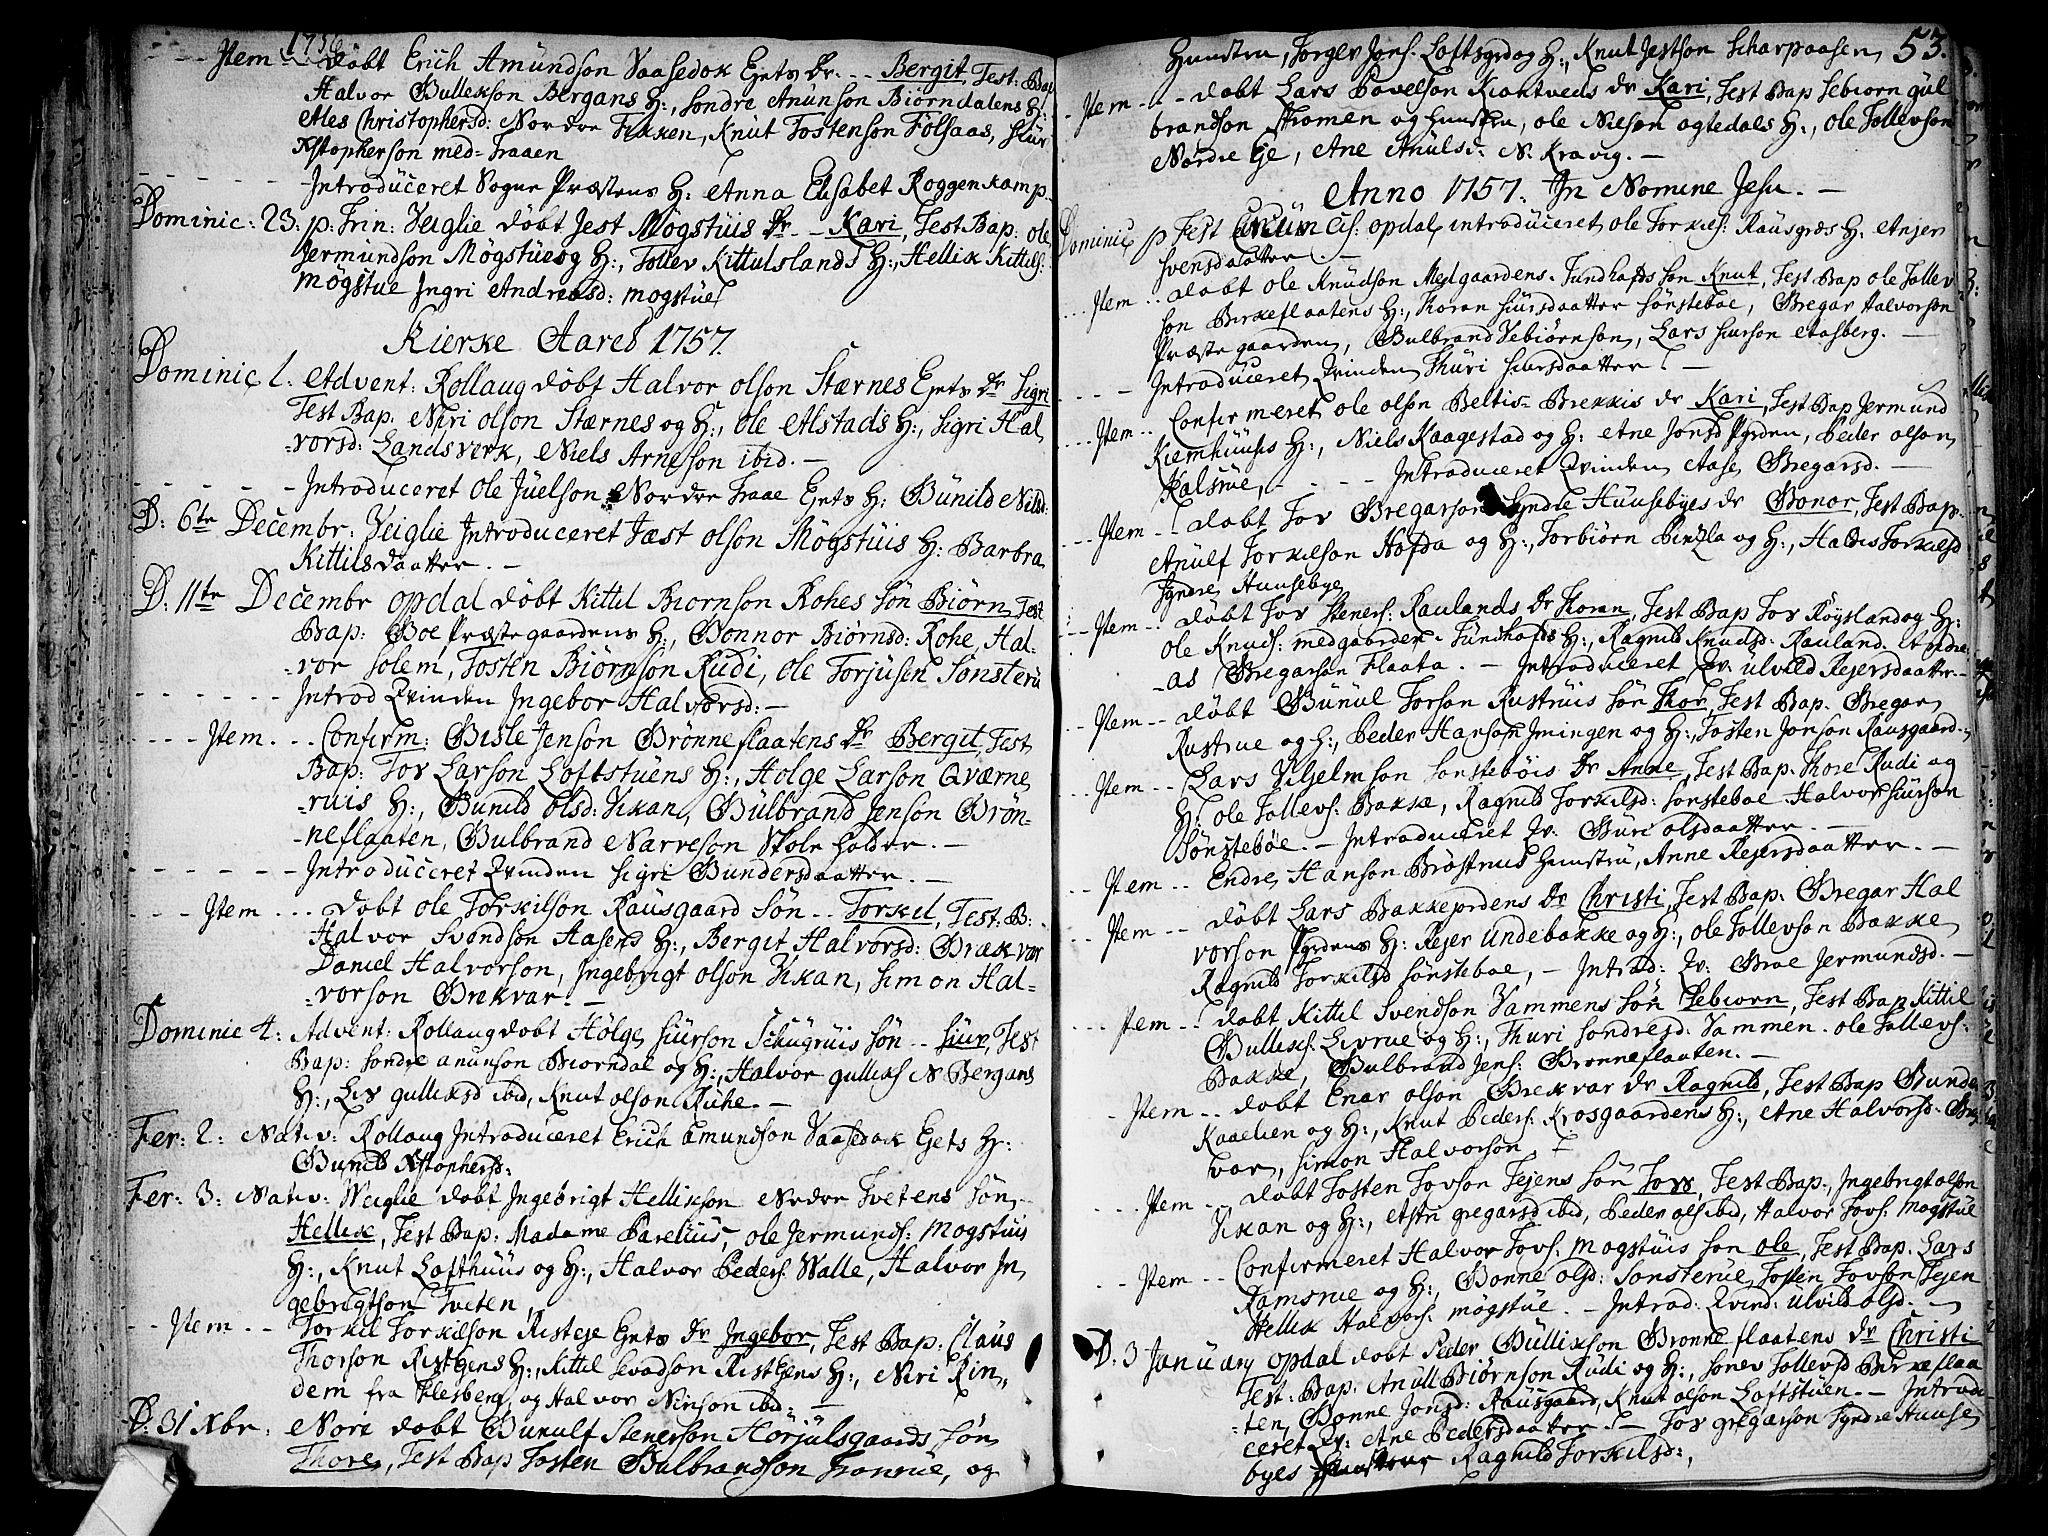 1756
Item - - døbt Erich Amundson Vaasedok Eiets dr. - - Bergit, Test: Bap
Halvor Gullekson Bergans H:, Sondre Anunson Biørndalens H:
Ales Christophersd: Nordre Fekken, Knut Tostenson Følsaas, Siur
Xstopherson med-Traaen
- - - - - - Introduceret Sogne Præstens H: Anna Elisabet Roggenkamp.
Dominic: 23. p. Trin: Veiglie døbt Jest Møgstuis dr - - Kari, Test Bap: ole
Jermundson Møgstue og H:, Tollev Kittulslands H:, Hellik Kittels:
Møgstue Ingri Andreasd: mogstue
Kierke Aaret 1757.
Dominic 1. Advent: Rollaug døbt Halvor olson Stærnes Eiets dr Sigri
Test Bap: Niri olson Stærnes og H:, ole Alstads H:, Sigri Hal
-vorsd: Landsverk, Niels Arneson ibid. -
- - - - - - Introduceret Ole Juelson Nordre Traae Eiets H: Gunild Nilsd:
D: 6te Decembr: Veiglie Introduceret Jæst olson Møgstuis H: Barbra
Kittilsdaatter. -
D: 11te Decembr opdal døbt Kittil Biornson Rohes Søn Biørn, Test
Bap: Goe Præstegaardens H:, Gonnor Biørnsd: Rohe, Hal-
-vor Solem, Tosten Biørnson Rudi, ole Torjusen Sønsterü
- - - - - - Introd Qvinden Ingebor Halvorsd: -
- - - - Item. - - Confirm: Gisle Jenson Grønneflaatens dr Bergit, Test
Bap: Tor Larson Loftstuens H:, Holge Larson Qværne
-ruis H:, Gunild olsd: Vikan, Gulbrand Jenson Grøn-
-neflaaten, Gulbrand Narveson Skole holder. -
- - - - - - Introduceret Qvinden Sigri Gundersdaatter. -
- - - Item - - - døbt ole Torkilson Rausgaard Søn - - Torkil, Test: B:
Halvor Svendson Aasens H:, Bergit Halvorsd: Grækvar
Daniel Halvorson, Ingebrigt olson Vikan, Simon Hal-
-vorson Grekvar. -
Dominic 4: Advent: Rollaug døbt Holge Siurson Schugruis Søn - - Siur, Test
Bap: Sondre anunson Biorndal og H:, Halvor gulliks N Bergans
H:, Liv gulliksd ibid, Knut olson Ruhe. -
Fer: 2: Nativ: Rollaug Introduceret Erich Amundson Vaasedok Eiets H:
Gunild Xstophersd:
Fer: 3: Nativ: Weiglie døbt Ingebrigt Hellikson Nedre Tvetens Søn
Hellik, Test Bap: Madame Barelius, ole Jermunds: Mogstuis
H:, Knut Lofthuus og H:, Halvor Peders: Walle, Halvor In
gebrigtson Tveten,
- - Item - - Torkil Torkilson Risteie Eiets dr Ingebor, Test Bap. Claus
Thorson Risteiens H:, Kittil Sevadson Risteiens H:, Niri Kin,,
dem fra Flesberg, og Halvor Nirison ibid: -
D: 31 Xbr: Nore døbt Gunulf Stenerson Hørjulsgaards Søn
Thore, Test Bap Tosten Gulbrandson Tranrue, og
53.
Hunstru, Torger Jons: Loftsgrd og H:, Knut Jestson Scharpaasen
- Item - - - døbt Lars Povelson Kiontveds dr Kari, Test Bap Sebiørn gul
brandson Stromen og Hunstru, ole Nielson ogtedals H:, ole Tollevson
Nordre Eje, Ane Anulsd: N. Kravig. -
Anno 1757. In Nomine Jesu. -
Dominic p Fest Circumcis: opdal introduceret ole Torkils: Rausgrds H. Anjer
Svensdaatter. -
- - Item - - døbt ole Knudson Medgaardens Tundhafts Søn Knut, Test Bap ole Tollev
son Birkeflaatens H:, Thoran Siursdaatter Sønsteboe, Gregar Halvorson
Præstegaarden, Gulbrand Sebiørnson, Lars Siurson Aasberg. -
- - - - Introduceret Qvinden Thuri Siursdaatter. -
- - Item - - Confirmeret ole olson Beltis- Brekkis dr Kari, Test Bap Jermund
Kiemhuuses H:, Niels Kaagestad og H: Ane Jonsd Pgrden, Peder olson
Kalsrue, - - - - Introduceret Qvinden Aase Gregarsd. -
- - Item - - døbt Tor Gregarson Syndre Huusebyes dr Gonor, Test Bap.
Anulf Torkilson Hofda og H:, Torbiørn Penzla og H:, Haldis Torkilsd
Syndre Huusebye
- - Item - - døbt Tor Steners: Raulands dr Thoran, Test Bap Tor Røysland og H:
ole Knuds: medgaarden Tundhafts H:, Ragnild Knudsd: Rauland. Andre
-as Gregarson Flaata. - Introduceret Qv: ulvild Rejersdaatter. -
- Item - - døbt Gunul Torson Rustruis Søn Thor, Test Bap. Gregar
Rustrue og H:, Peder Hanson Imingen og H:, Tosten Jonson Rausgaard.
- - Item - - Lars Vilhelmson Sønstebøis dr Anne, Test Bap. Thore Rudi og
H: ole Tollevs: Bakke, Ragnild Torkilsd: Sønsteboe Halvor Siurson
Sønstebøe. - Introduceret Qv: Guri olsdaatter. -
- - Item - - Endre Hanson Brøstrus Hunstru, Anne Rejersdaatter. -
- - Item - - døbt Lars Bakkejordens dr Christi, Test Bap: Gregar Hal
vorson Pgrdens H: Rejer Undebakke og H:, ole Tollevson Bakke
Ragnild Torkilsd Sønsteboe, - Introd: Qv: Goe Jermundsd. -
- - Item - - døbt Kittil Svendson Vammens Søn Sebiorn, Test Bap Kittil
Gulliks: Livrue og H:, Thuri Sondresd: Vammen. ole Tollevs:
Bakke, Gulbrand Jens: Grønneflaaten. -
- Item - - døbt Enar olson Grekvar dr Ragnild, Test Bap Gunder
Kaaelien og H:, Knut Peders: Krosgaardens H:, Ane Halvorsd: Gre,
var, Simon Halvorson -
- - Item - - døbt Tosten Tovson Tejens Søn Tov, Test Bap:, Ingebrigt olson
Vikan og H:, Astri gregarsd ibid, Peder ols ibid, Halvor Tovs: Mogstue
- - Item - - Confirmeret Halvor Tovs: Mogstuis Søn ole, Test Bap. Lars
Ramsrue og H:, Gonne olsd: Sønsterue, Tosten Tovson Tejen
Hellik Halvors: møgstue. - Introd: Qvind: ulvild olsd. -
D: 3 January opdal døbt Peder Gullikson Grønneflaatens dr Christi
Test: Bap: Anull Biørnson Rudi og H:, Sønev Tollevsd Birkeflaa
-ten, Gonne Jonsd: Rausgaard, Knut olson Loftstuen. - Introdu
ceret Qv: Ane Pedersdaatter. - Tor gregarson Syndre Huuse
byes Hunstrue Ragnild Torkilsd:,